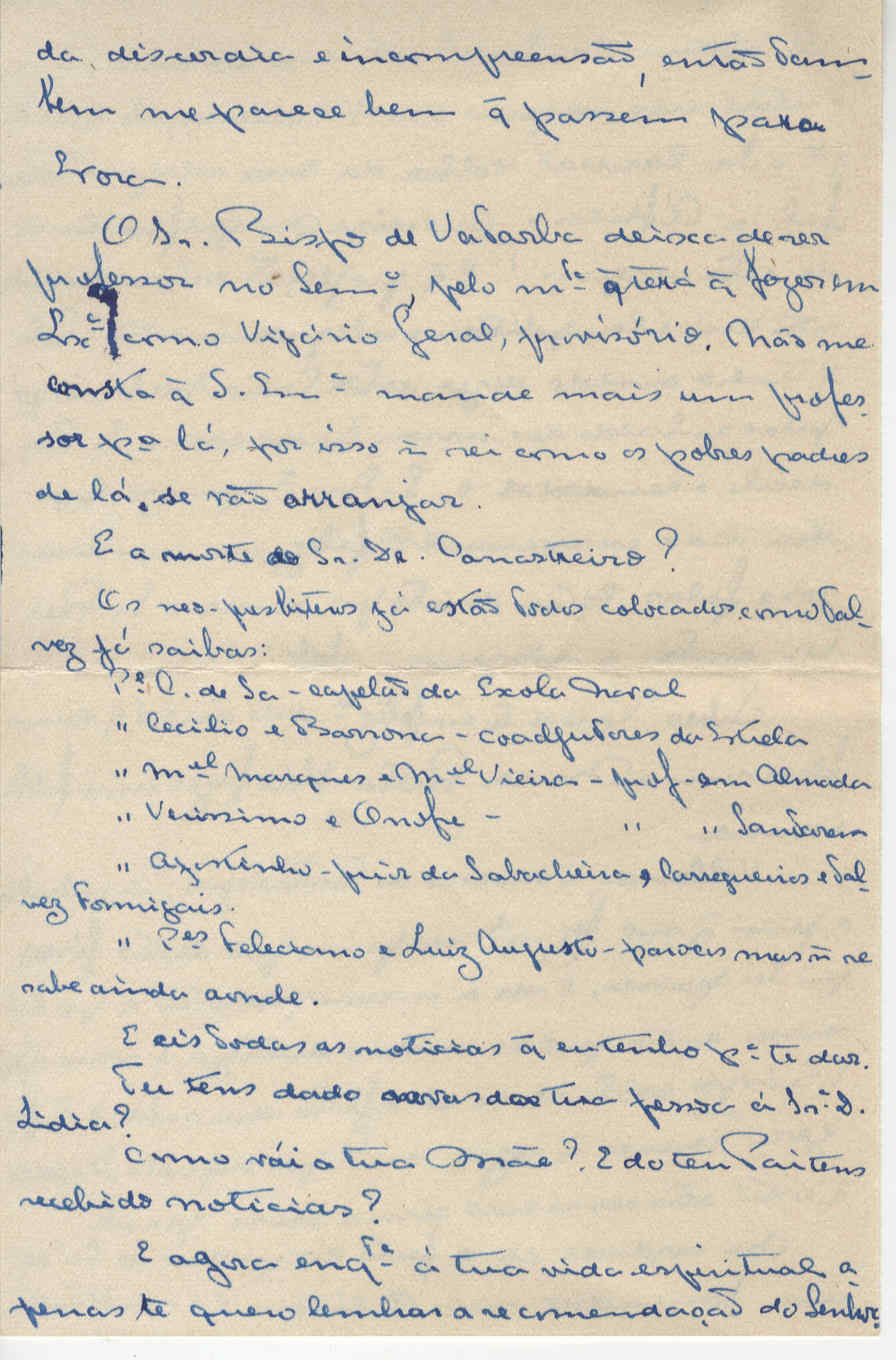 da discordia e incompreensão, então tam-
bem me parece bem q̃ passem para
Evora.
O Sr. Bispo de Vatarba deixa de ser
professor no Semº, pelo mtº q̃ terá q̃ fazer em
Lxª como Vigário Geral, provisório. Não me
consta q̃ S. Emª mande mais um profes-
sor pª lá, por isso ñ sei como os pobres padres
de lá, se vão arranjar.
E a morte do Sr. Dr. Canastreiro?
Os neo-presbiteros já estão todos colocados como tal-
vez já saibas:
Pe C. de Sa - capelão da Escola Naval
" Cecilio e Barrona - coadjutores da Estrela
" Mel Marques e Mel Vieira - prof. em Almada
" Verissimo e Onofre - " " Santarem
" Azinhenho - prior da Sabacheira, Carregueiros e tal-
vez Formigais.
" Pes Feleciano e Luiz Augusto - parocos mas ñ se
sabe ainda aonde.
E eis todas as noticias q̃ eu tenho pª te dar.
Tu tens dado novas da tua pessoa á Srª D.
Lidia?
Como vái a tua Mãe? E do teu Pai tens
recebido noticias?
E agora enqtº á tua vida espiritual a-
penas te quero lembrar a recomendação do Senhor: